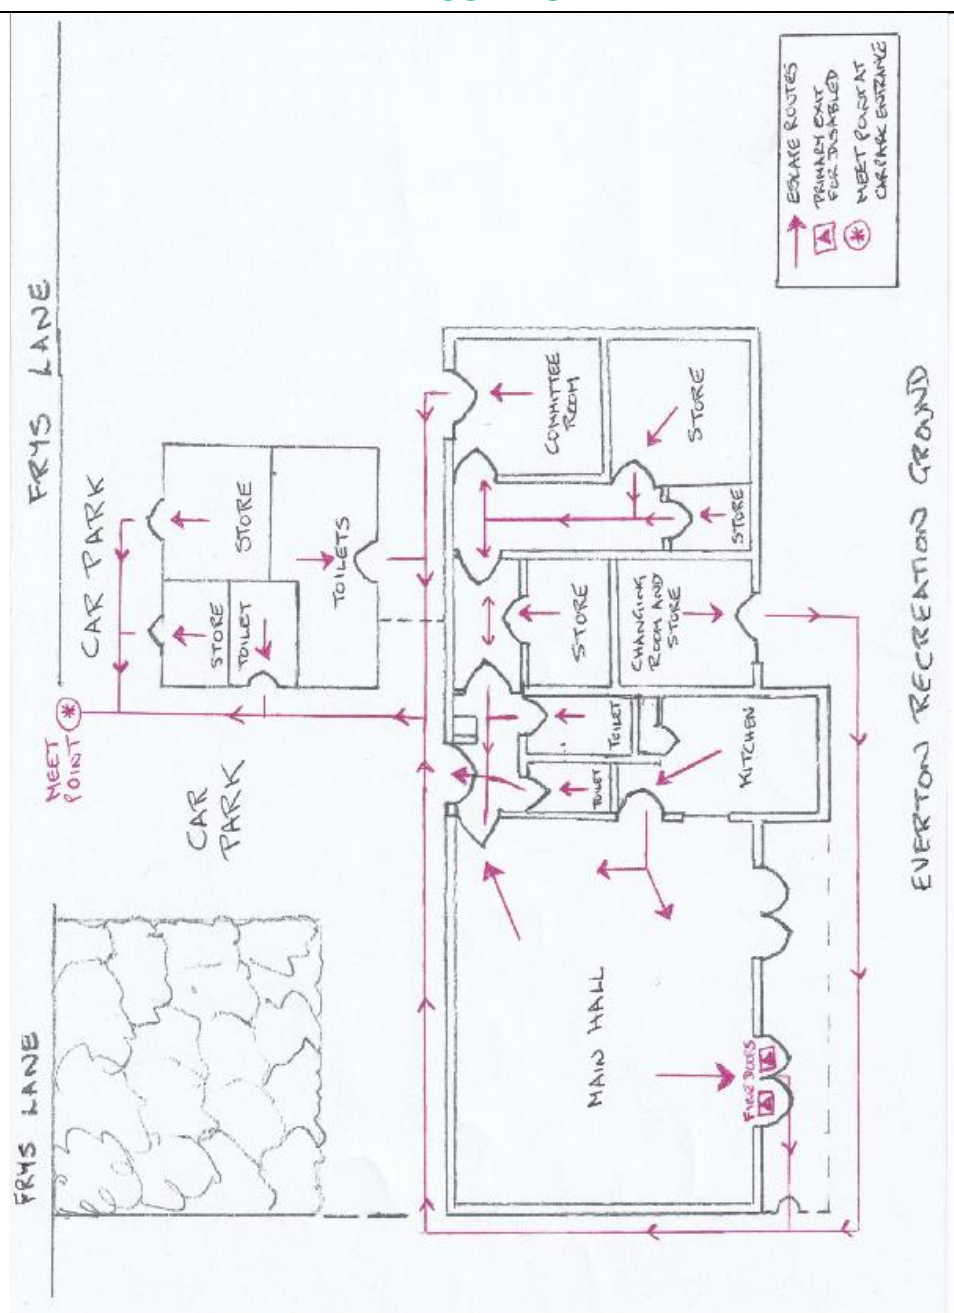 FRYS LANE
CAR PARK
MEET
POINT
CAR
PARK
FRYS LANE
STORE
STORE
TOILET
TOILETS
COMMITTEE
ROOM
STORE
STORE
STORE
CHANGING
ROOM AND
STORE
TOILET
TOILET
KITCHEN
MAIN HALL
FIRE DOORS
EVERTON RECREATION GROUND
ESCAPE ROUTES
PRIMARY EXIT
FOR DISABLED
MEET POINT AT
CAR PARK ENTRANCE